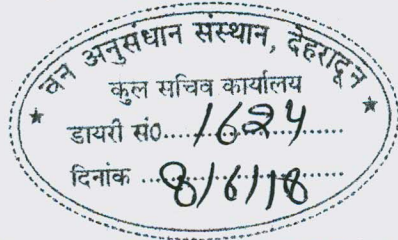 वन अनुसंधान संस्थान, देहरादून
कुल सचिव कार्यालय
डायरी सं०....1624........
दिनांक ....8/6/18......